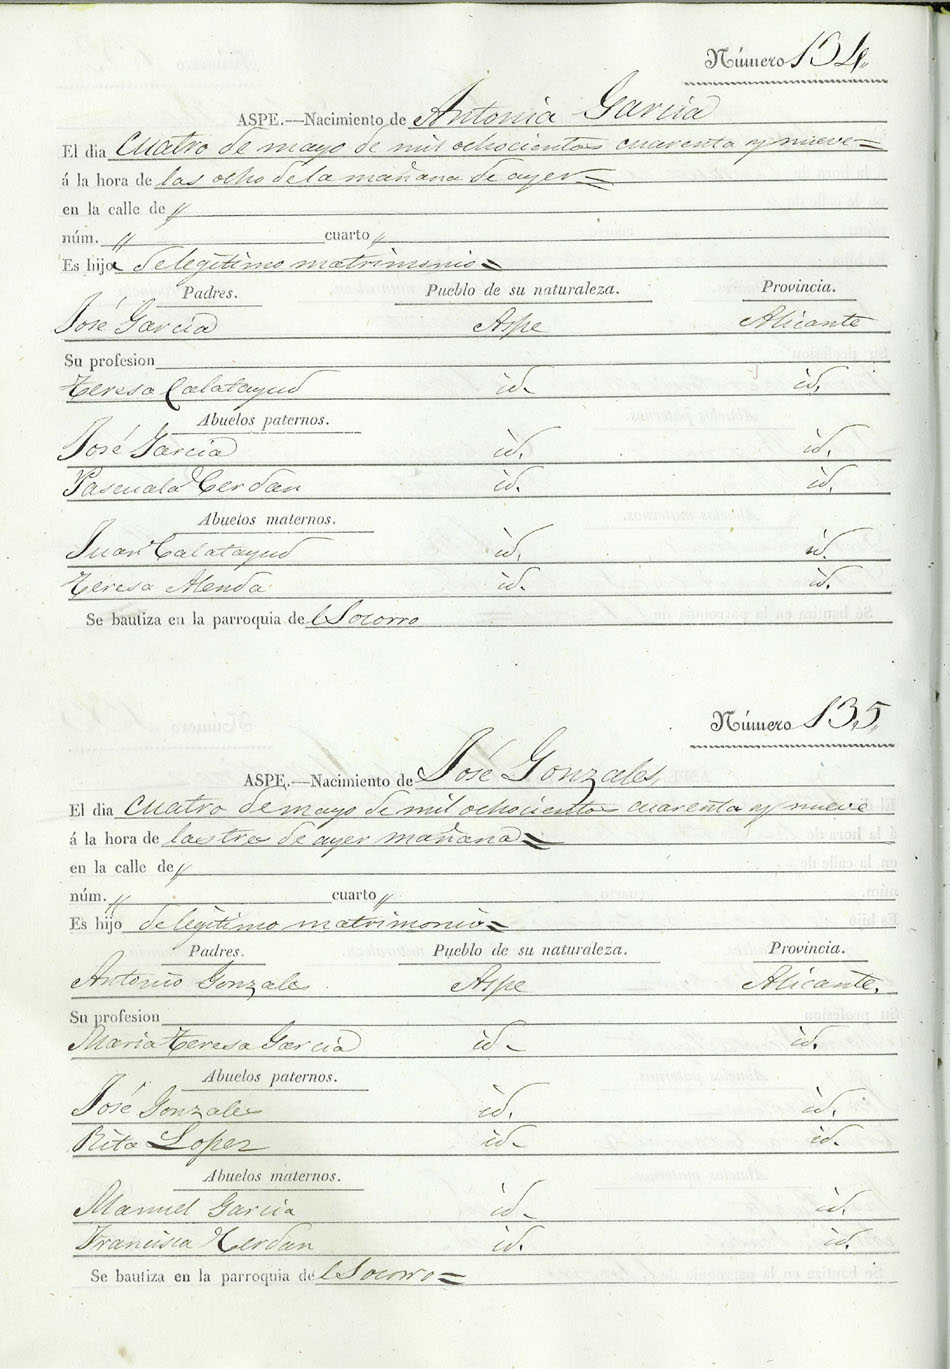 Número 134.
ASPE.—Nacimiento de Antonia Garcia
El dia cuatro de mayo de mil ochocientos cuarenta y nueve =
á la hora de las ocho de la mañana de ayer =
en la calle de "
núm. " cuarto "
Es hija de legítimo matrimonio =
Padres. Pueblo de su naturaleza. Provincia.
José Garcia Aspe Alicante
Su profesion
Teresa Calatayud id. id.
Abuelos paternos.
José Garcia id. id.
Pascuala Cerdan id. id.
Abuelos maternos.
Juan Calatayud id. id.
Teresa Alenda id. id.
Se bautiza en la parroquia del Socorro
Número 135.
ASPE.—Nacimiento de José Gonzales
El dia cuatro de mayo de mil ochocientos cuarenta y nueve
á la hora de las tres de ayer mañana =
en la calle de "
núm. " cuarto "
Es hijo de legítimo matrimonio =
Padres. Pueblo de su naturaleza. Provincia.
Antonio Gonzales Aspe Alicante.
Su profesion
Maria Teresa Garcia id. id.
Abuelos paternos.
José Gonzales id. id.
Rita Lopez id. id.
Abuelos maternos.
Manuel Garcia id. id.
Francisca Cerdan id. id.
Se bautiza en la parroquia del Socorro =